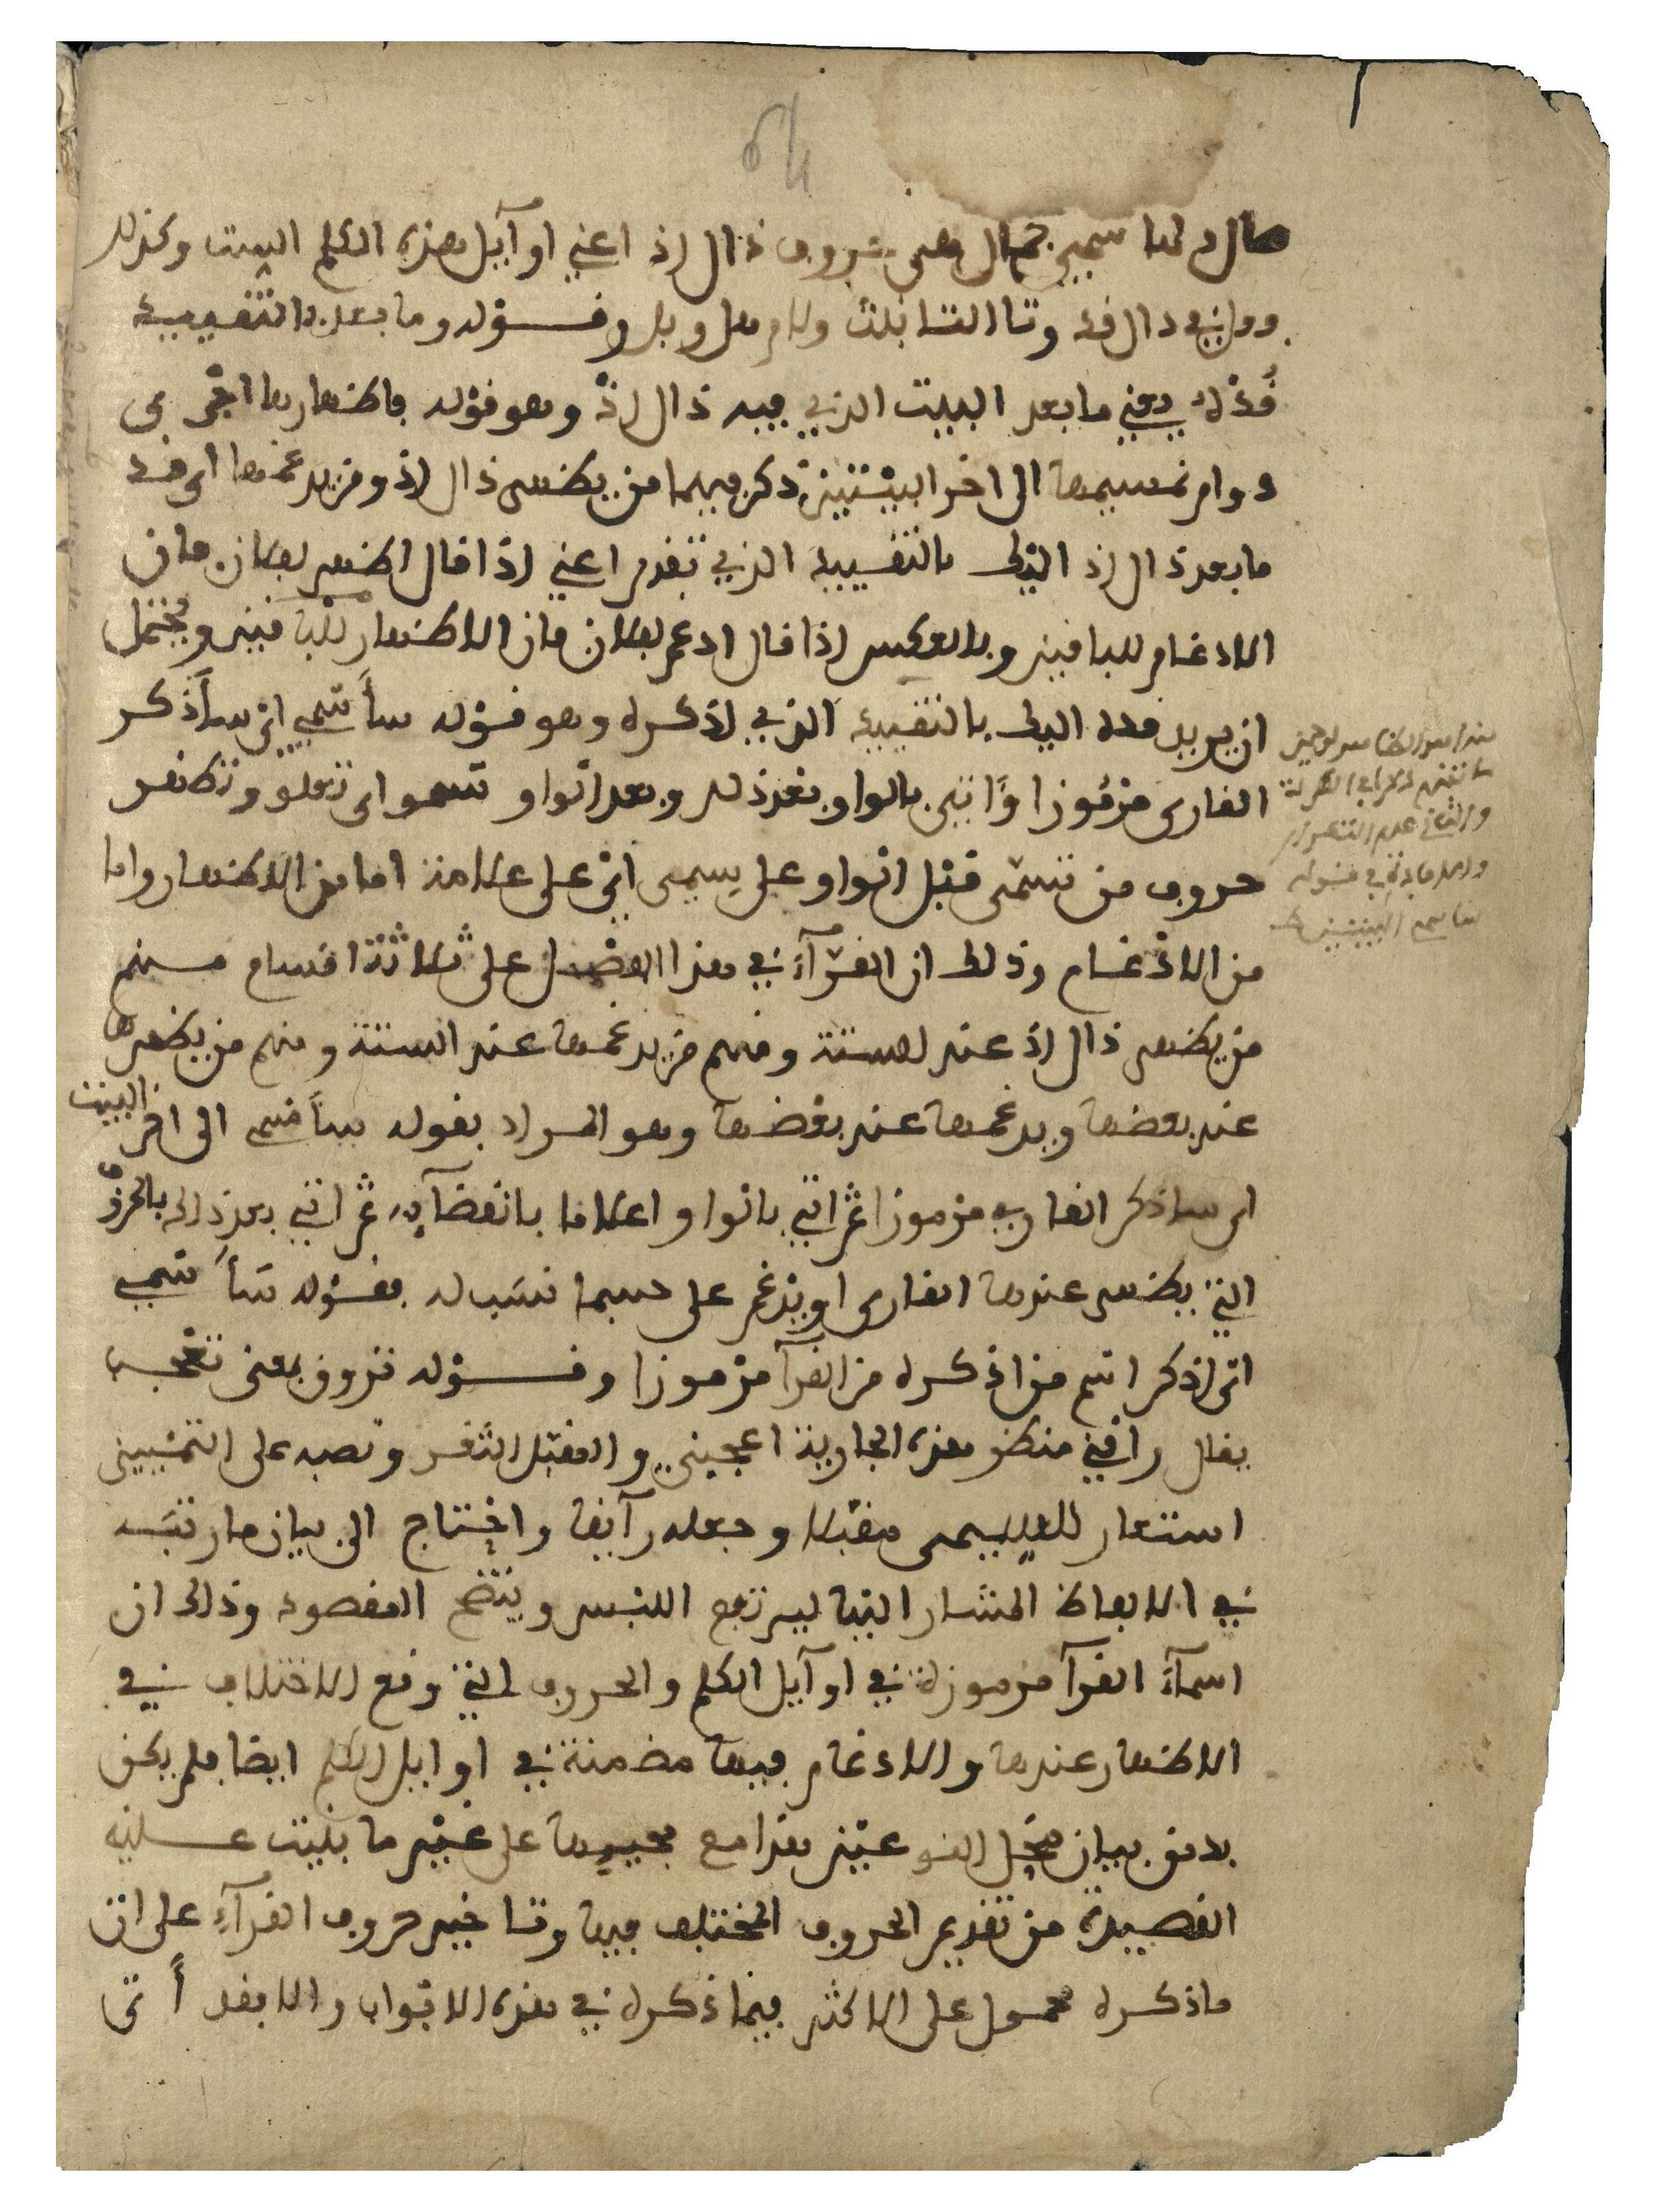 صال دلها سمي جمال هي حروف ذال اذ اعني اوآيل هذه الكلم الست وكذلك
في دال قد وتا التانيث ولام هل وبل وقوله وما بعد بالتقييد
قده يعني ما بعد البيت الذي فيه ذال اذ وهو قوله فاظهارها اجرى
دوام نسيمها الى اخر البيتين ذكر فيهما من يظهر ذال اذ ومن يدغمها اي قد
ما بعد ذال اذ اليك بالتقييد الذي تقدم اعني اذا قال اظهر لفلان فان
الادغام للباقين وبالعكس اذا قال ادغم لفلان فان الاظهار للباقين ويحتمل
ان يريد قده اليك بالتقييد الذي اذكره وهو قوله سأسمي اي سأذكر
القارى مرموزا وءاتي بالواو بعد ذلك وبعد الواو تسموا اي تعلو وتظهر
حروف من تسمى قبل الواو على سيمى اي على علامة اما من الاظهار واما
من الادغام وذلك ان القرآء في هذا الفصل على ثلاثة اقسام منهم
من يظهر ذال اذ عند الستة ومنهم من يدغمها عند الستة ومنهم من يظهرها
عند بعضها ويدغمها عند بعضها وهو المراد بقوله سأسمي الى اخر البيت
اي ساذكر القارىء مرموزا ثم اتي بالواو اعلاما بانقضآيه ثم اتي بعد ذلك بالحروف
التي يظهر عندها القارى او يدغم على حسبما نسب له فقوله سأسمي
اي اذكر اسم من اذكره من القرآ مرموزا وقوله تروق بمعنى تعجب
يقال راقني منظر هذه الجارية اعجبني والمقبل الثغر ونصبه على التمييز
استعار للسيمى مقبلا وجعله رآيقا واحتاج الى بيان ما رتبه
في الالفاظ المشار اليها ليرتفع اللبس ويتضح المقصود وذلك ان
اسمآء القرآ مرموزة في اوآيل الكلم والحروف التي وقع الاختلاف في
الاظهار عندها والادغام فيها مضمنة في اوايل الكلم ايضا فلم يكن
بد من بيان محل النوعين هذا مع مجييها على غير ما بنيت عليه
القصيدة من تقديم الحروف المختلف فيها وتاخير حروف القرآء على ان
ما ذكره محمول على الاكثر فيما ذكره في هذه الابواب والا فقد أتى